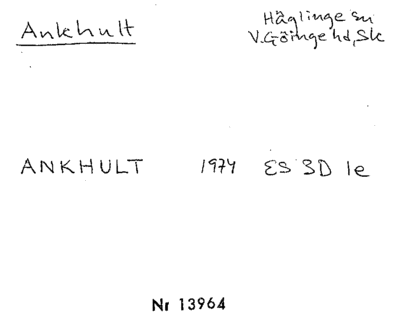 Ankhult
Häglinge sn
V. Göinge hd, Sk
ANKHULT 1974 ES 3D 1e
Nr 13964